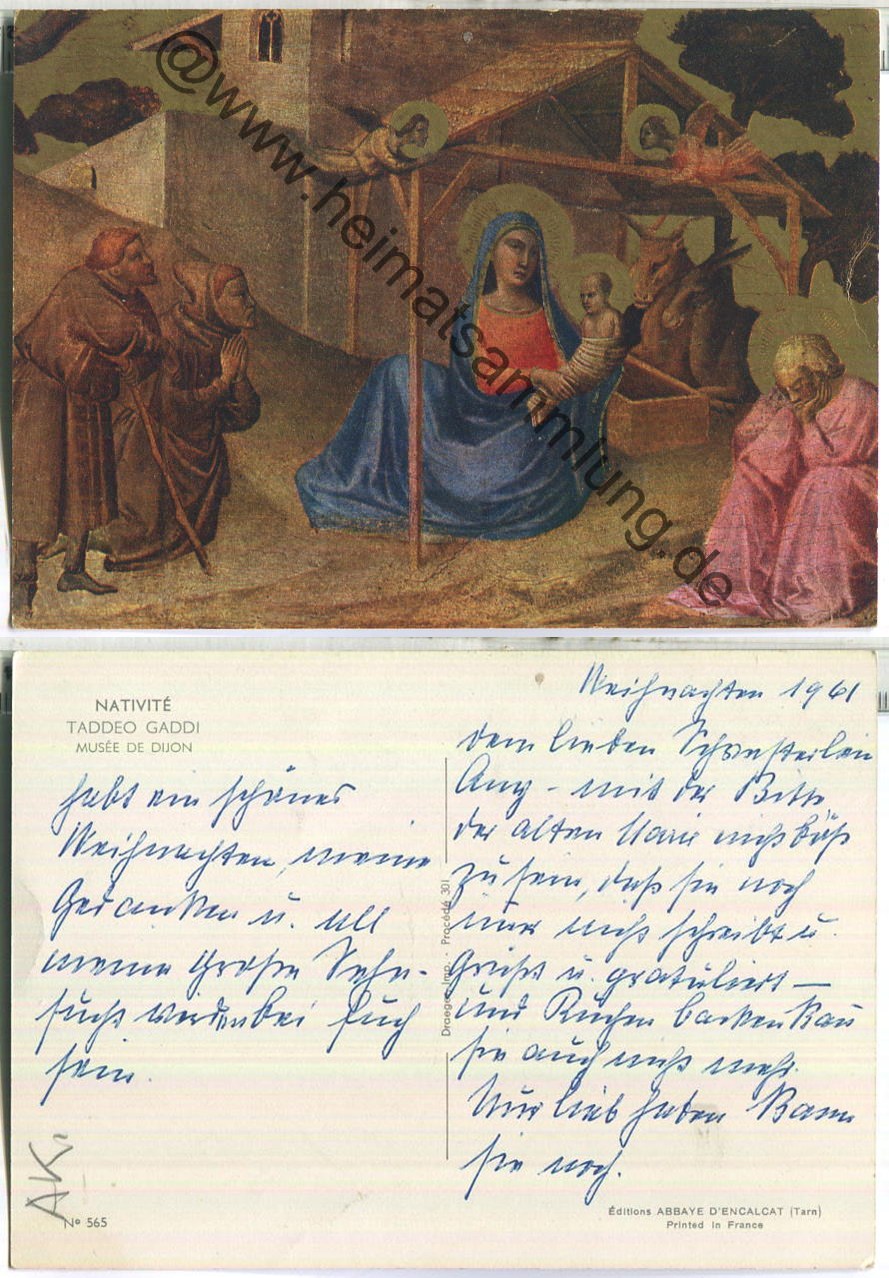 @www.heimatsammlung.de
NATIVITÉ
TADDEO GADDI
MUSÉE DE DIJON
habt ein schönes
Weihnachten, meine
Gedanken u. all
meine große Sehn-
sucht werden bei Euch
sein.
AK
Nº 565
Draeger Imp. - Procédé 301
Weihnachten 1961
dem lieben Schwesterlein
Any - mit der Bitte
der alten Marie nicht böß
zu sein, daß sie noch
nicht schreibt u.
Grüßt u. gratuliert -
und Kuchen backen kan
sie auch nicht mehr.
Nur lieb haben kann
sie noch.
Éditions ABBAYE D'ENCALCAT (Tarn)
Printed in France